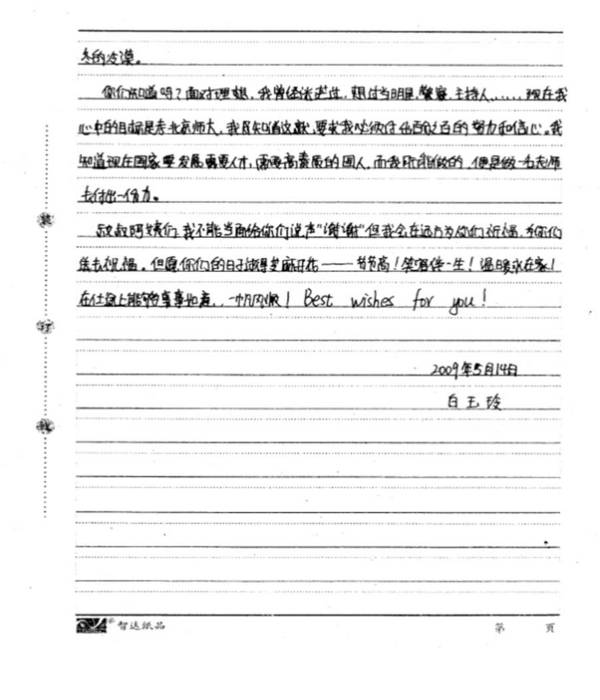 冬的冷漠。
你们知道吗？面对理想，我曾经迷茫过，想过当明星、警察、主持人……，现在我
心中的目标是考北京师大，我深知道这就要求我必须付出百分之百的努力和信心，我
知道现在国家要发展需要人才，需要高素质的国人，而我所能做的，便是做一名老师
去付出一份力。
叔叔阿姨们，我不能当面给你们说声“谢谢”但我会在远方为你们祈福，为你们
送去祝福，但愿你们的日子过得芝麻开花——节节高！笑容伴一生！温暖永在家！
在仕途上能够事事如意，一帆风顺！Best wishes for you!
2009年5月14日
白玉玲
装
订
线
智达纸品
第 页